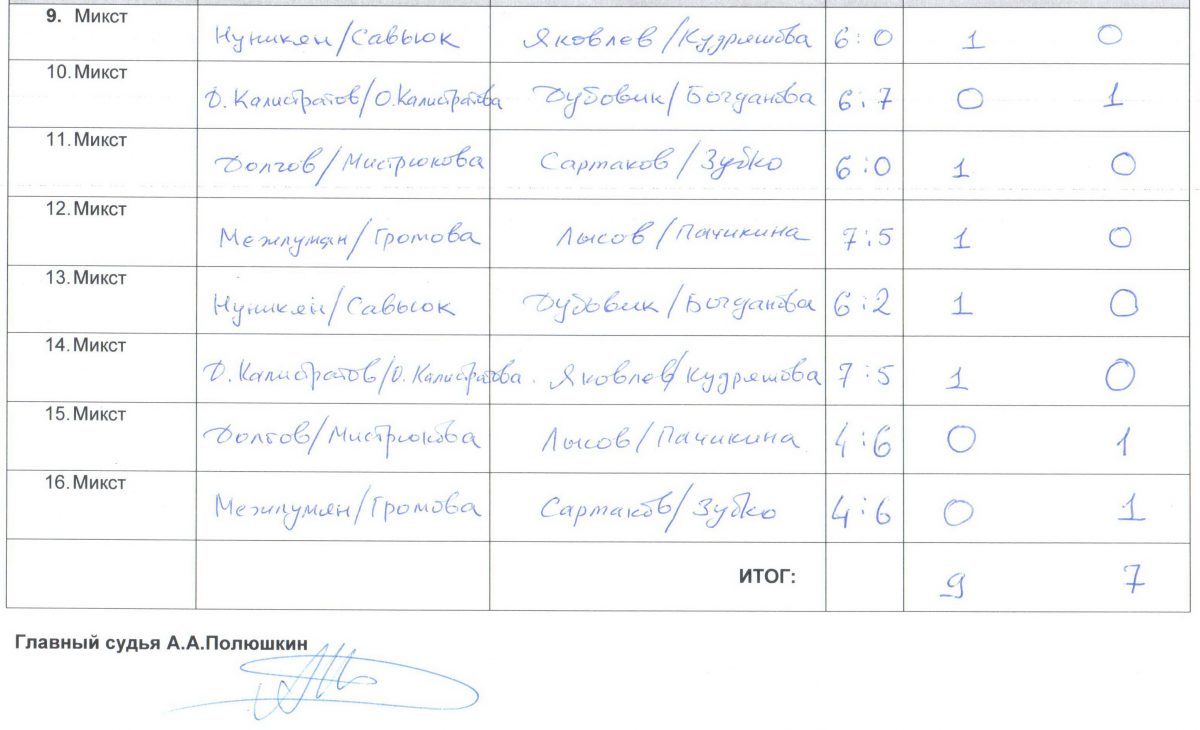 9. Микст Нуникян/Савьюк Яковлев/Кудряшова 6:0 1 0
10. Микст Д. Калистратов/О. Калистратова Дубовик/Богданова 6:7 0 1
11. Микст Долгов/Мистрюкова Сартаков/Зубко 6:0 1 0
12. Микст Межлумян/Громова Лысов/Пачикина 7:5 1 0
13. Микст Нуникян/Савьюк Дубовик/Богданова 6:2 1 0
14. Микст Д. Калистратов/О. Калистратова. Яковлев/Кудряшова 7:5 1 0
15. Микст Долгов/Мистрюкова Лысов/Пачикина 4:6 0 1
16. Микст Межлумян/Громова Сартаков/Зубко 4:6 0 1
ИТОГ: 9 7
Главный судья А.А.Полюшкин